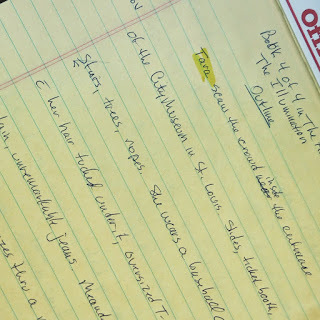 Offi
Book 4 of 4 in The
The Illumination
Outline
Tara scans the crowd inside the entrance
of the City Museum in St. Louis. Slides, ticket booth,
Stairs, trees, ropes. She wears a baseball
& her hair tucked under it, oversized T-
unremarkable jeans.
thru a